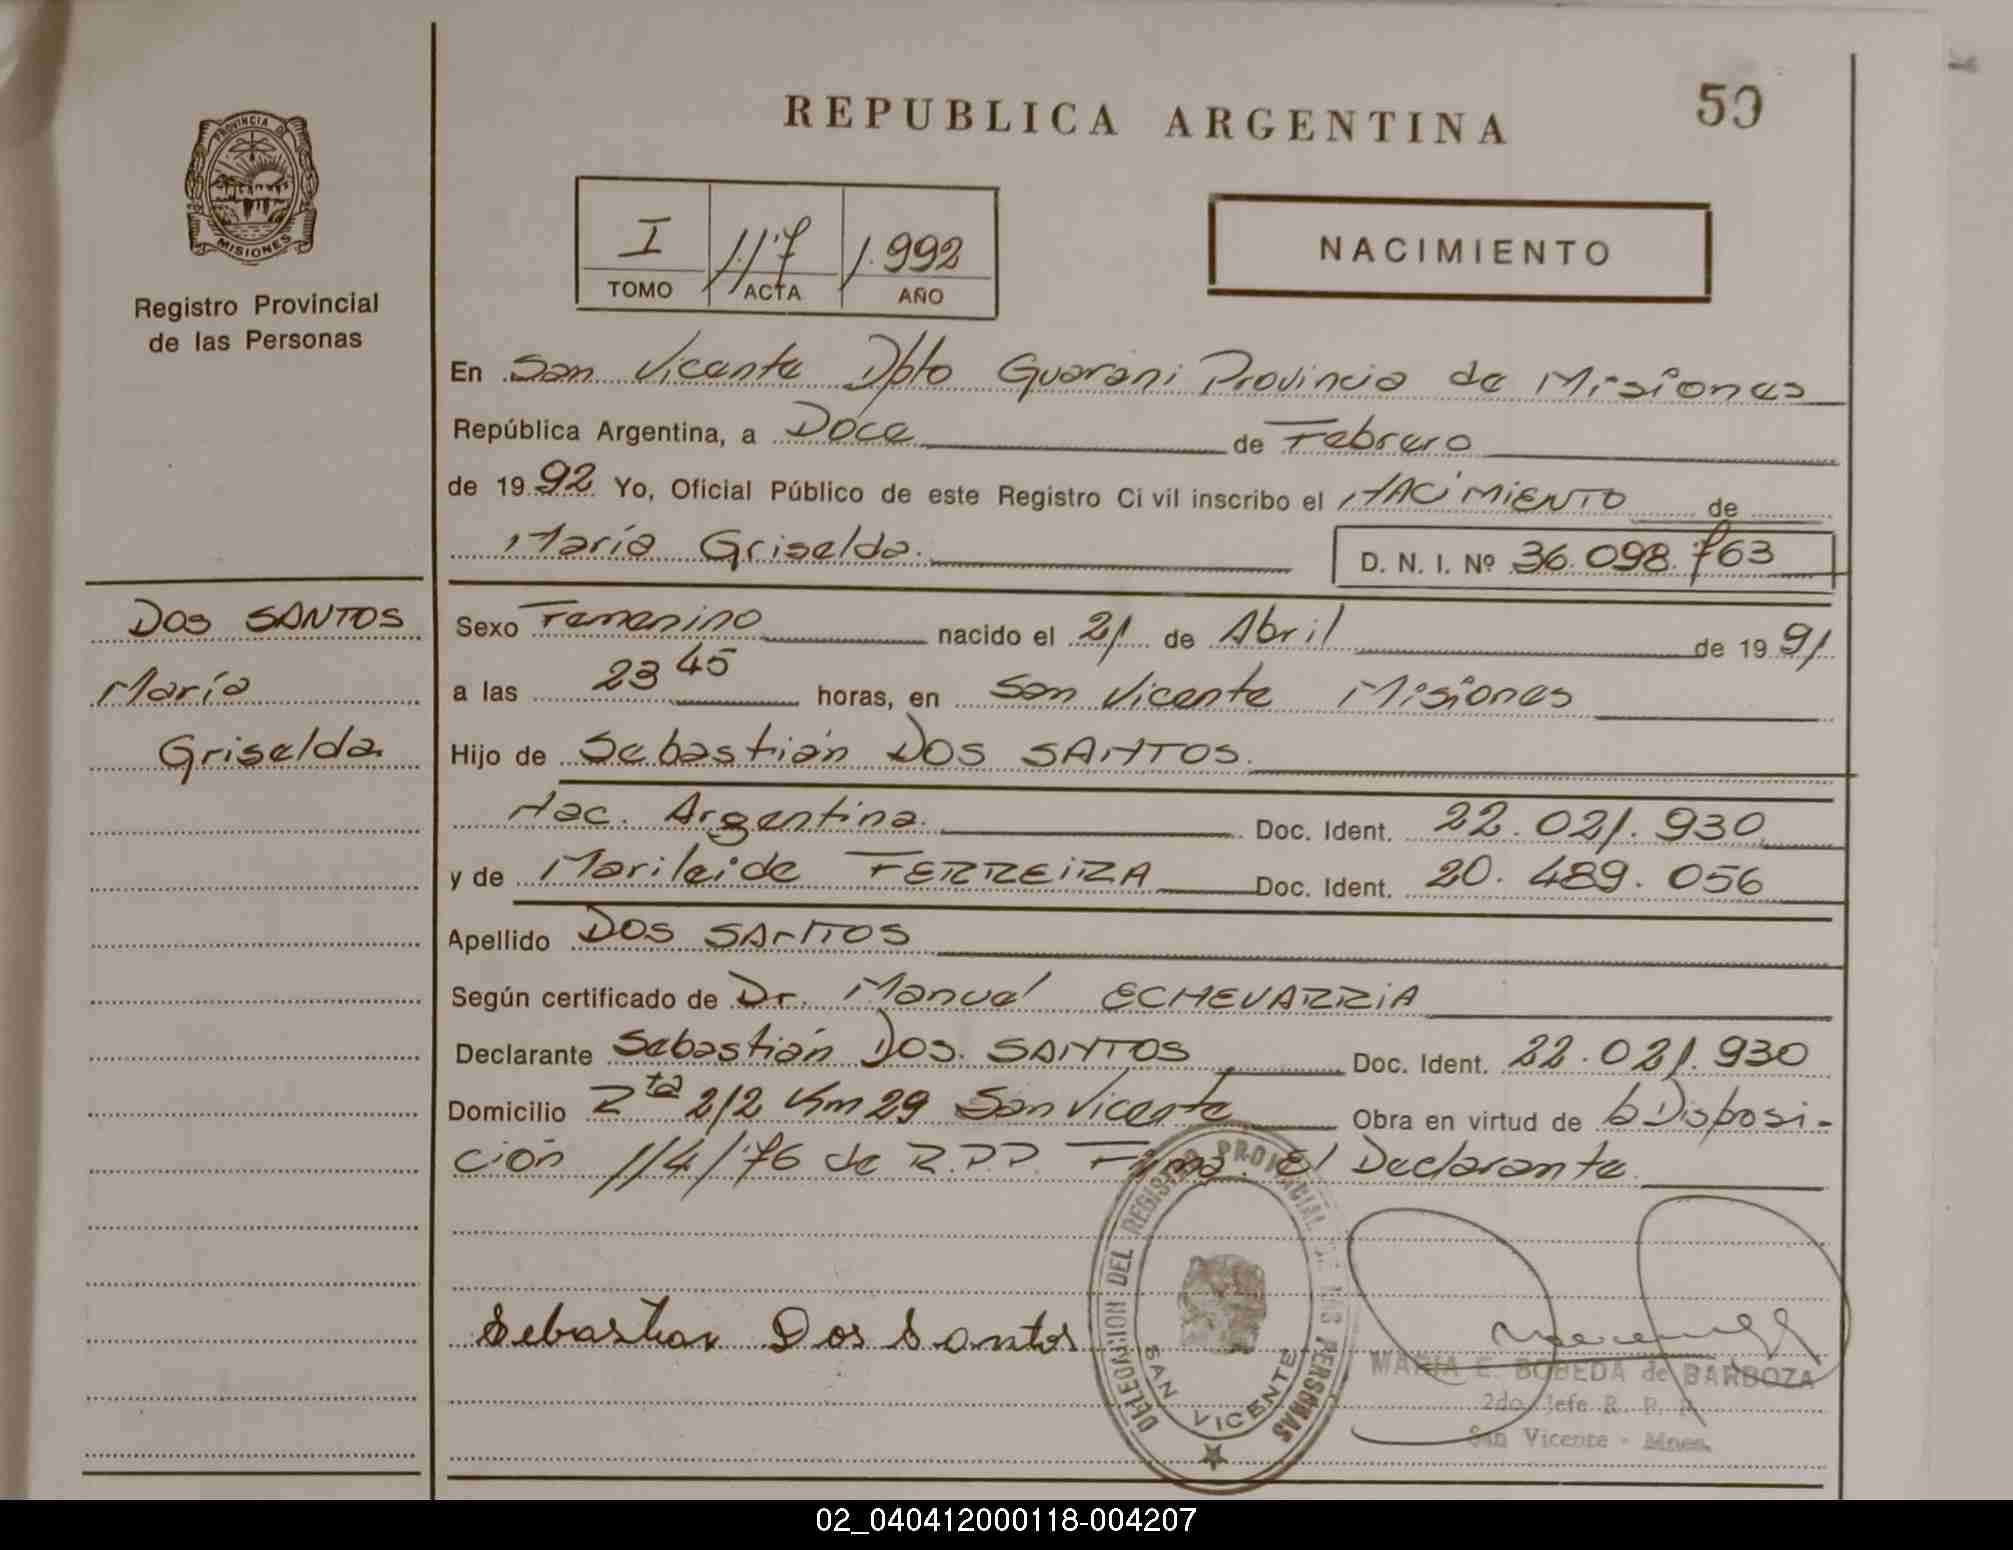 PROVINCIA DE
MISIONES
Registro Provincial
de las Personas
REPUBLICA ARGENTINA
59
I 117 1.992
TOMO ACTA AÑO
NACIMIENTO
En San Vicente Dpto Guarani Provincia de Misiones
República Argentina, a Doce de Febrero
de 1992 Yo, Oficial Público de este Registro Ci vil inscribo el NACIMIENTO de
María Griselda. D. N. I. Nº 36.098.763
DOS SANTOS
María
Griselda
Sexo Femenino nacido el 21 de Abril de 1991
a las 23 45 horas, en San Vicente Misiones
Hijo de Sebastián DOS SANTOS.
Nac. Argentina. Doc. Ident. 22.021.930
y de Marileide FERREIRA Doc. Ident. 20.489.056
Apellido DOS SANTOS
Según certificado de Dr. Manuel ECHEVARRIA
Declarante Sebastián DOS SANTOS Doc. Ident. 22.021.930
Domicilio Rta 212 Km 29 San Vicente Obra en virtud de Disposi-
ción 114/76 de R.P.P. Firma El Declarante.
Sebastian Dos Santos
DELEGACION DEL REGISTRO PROVINCIAL DE LAS PERSONAS
SAN VICENTE
MARIA E. BOBEDA de BARBOZA
2do. Jefe R. P. P.
San Vicente - Mnes.
02_040412000118-004207